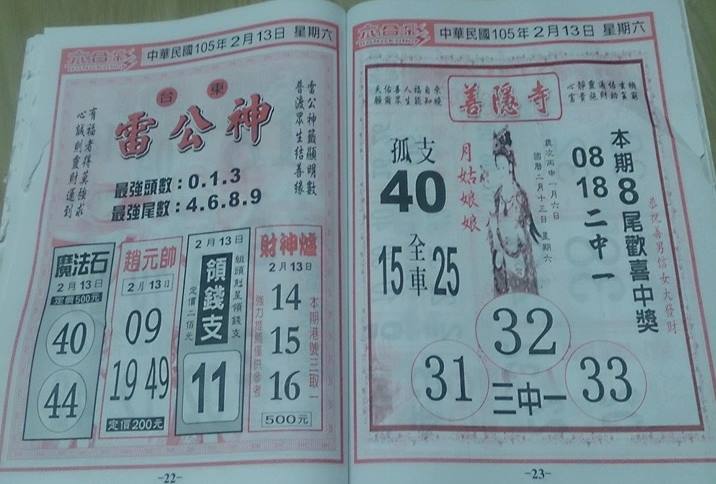 六合彩
中華民國105年2月13日 星期六
台東
雷公神
雷公神籤顯明數
普渡眾生結善緣
有福者得莫強求
心誠則靈財運到
最強頭數：0.1.3
最強尾數：4.6.8.9
魔法石
2月13日
定價500元
40
44
趙元帥
2月13日
09
19 49
定價200元
2月13日
領錢支
組頭剋星領錢支
定價二佰元
11
財神爐
2月13日
14
15
16
本期港號三取一
500元
-22-
六合彩
中華民國105年2月13日 星期六
善隱寺
孤支
40
月姑娘娘
歲次丙申一月六日
國曆二月十三日 星期六
全車
15 25
本期8尾歡喜中獎
08
18
二中一
恭祝善男信女大發財
32
31
33
三中一
-23-